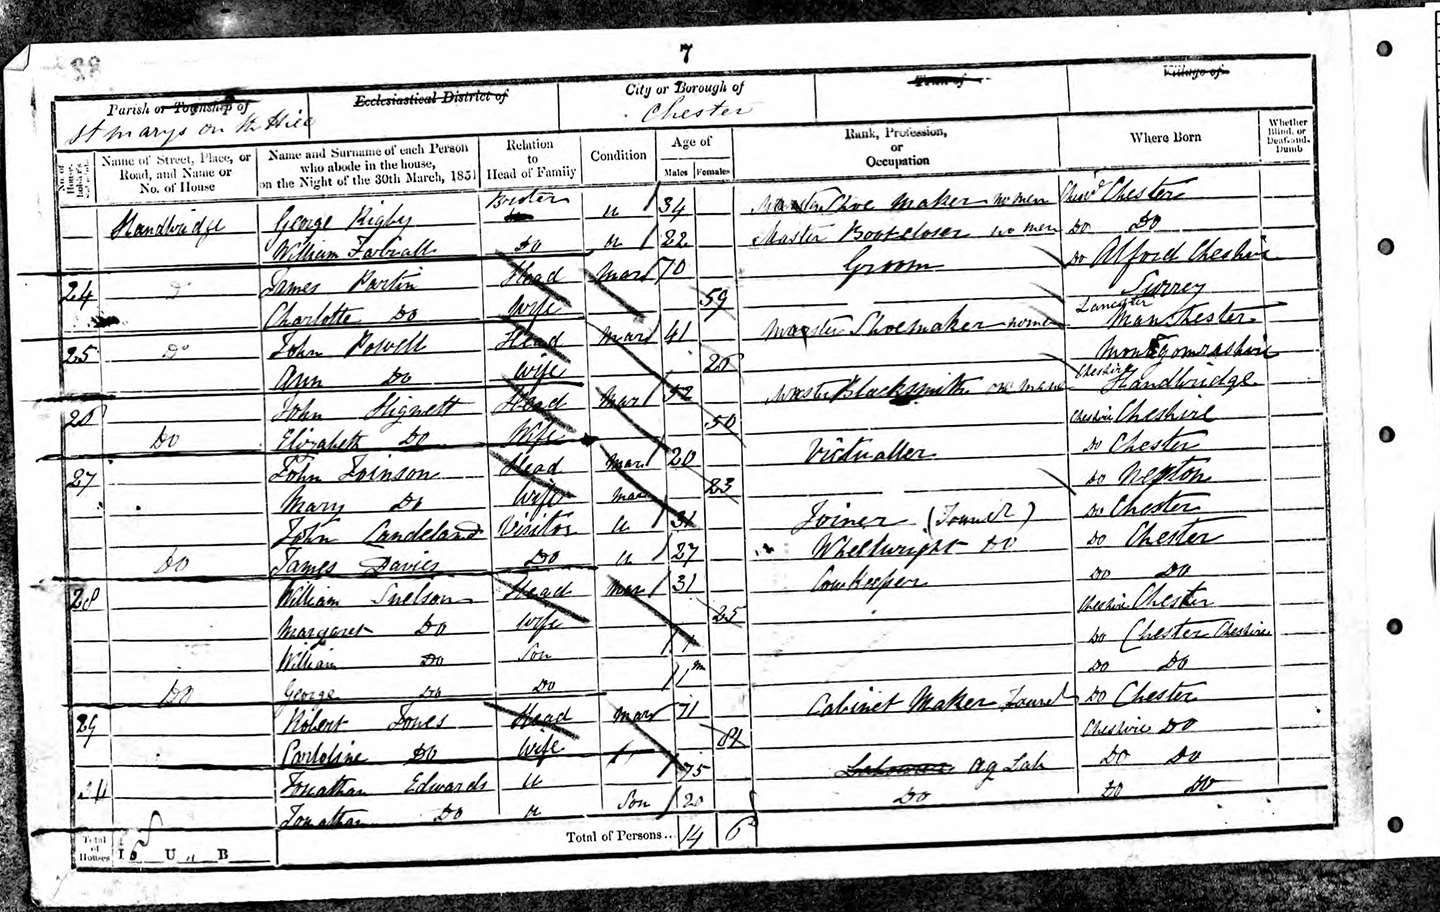 7
Parish or Township of
St Marys on the Hill
Ecclesiastical District of
City or Borough of
Chester
Town of
Village of
No. of House-holder's Schedule
Name of Street, Place, or Road, and Name or No. of House
Name and Surname of each Person who abode in the house, on the Night of the 30th March, 1851
Relation to Head of Family
Condition
Age of
Males
Females
Rank, Profession, or Occupation
Where Born
Whether Blind, or Deaf-and-Dumb
Handbridge George Rigby U 34 Master Shoe Maker no men Chester
William Do U 22 Master Bootcloser no men Do Do
24 James Partin Head Mar 70 Groom Do Alford Cheshire
Charlotte Do Wife 59 Surrey
25 Do John Powell Head Mar 41 Master Shoemaker no men Lancaster Manchester
Ann Do Wife 26
John Hignett Head Mar 52 Master Blacksmith Cheshire Handbridge
Do Elizabeth Do Wife 50 Cheshire Cheshire
27 John Head Mar 20 Victualler Do Chester
Mary Do Wife Mar 23 Do
John Candeland Visitor U 31 Joiner Do Chester
Do James Davies Do U 27 Wheelwright Do Do Chester
28 William Snelson Head Mar 31 Cowkeeper Do Do
Margaret Do Wife 25 Cheshire Chester
William Do Son Do Chester Cheshire
Do George Do Do 1m Do Do
29 Robert Jones Head Mar 71 Cabinet Maker Do Chester
Do Wife Cheshire Do
Jonathan Edwards U 75 Ag Lab Do Do
Jonathan Do U Son 20 Do Do Do
Total of Houses
I U B
Total of Persons... 14 6